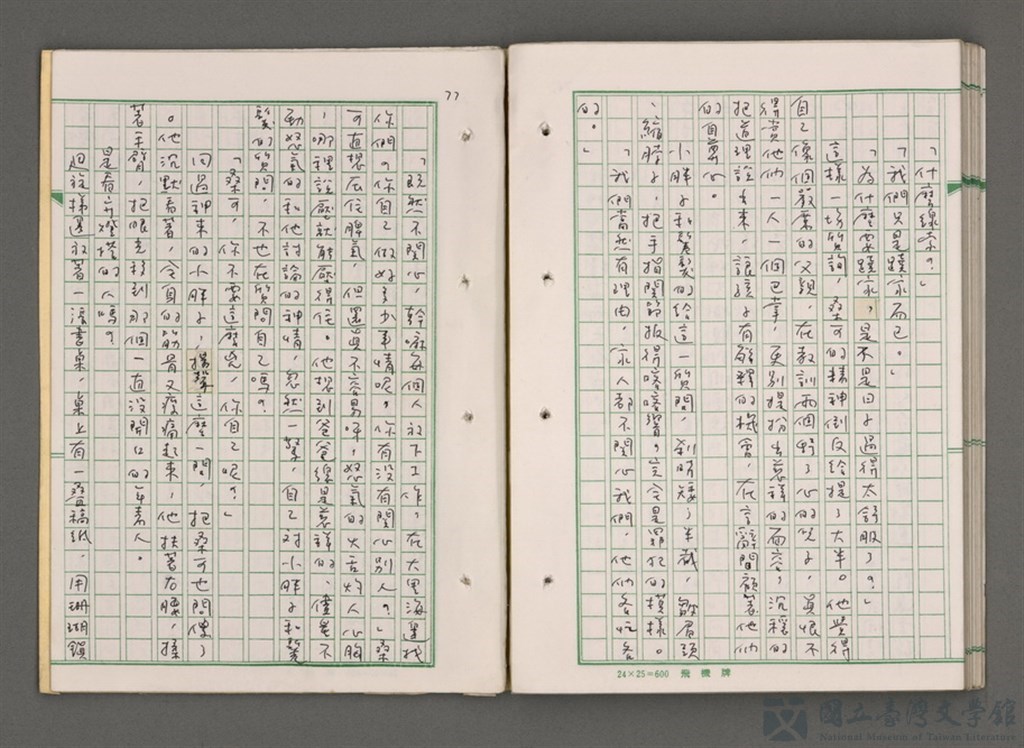 「什麼線索？」
「我們只是蹺家而已。」
「為什麼要蹺家？是不是日子過得太舒服了？」
這樣一場質詢，桑可的精神倒反給提了大半。他覺得
自己像個嚴業的父親，在教訓兩個野了心的兒子，真恨不
得賞他們一人一個巴掌，更別提扮出慈祥的面容，沉穩的
把道理說出來，讓孩子有解釋的機會，在言辭間顧著他們
的自尊心。
小胖子和鬈髮的給這一質問，剎時矮了半截，皺眉頭
、縮脖子，把手指關節扳得喀喀響，完全是罪犯的模樣。
「我們當然有理由，家人都不關心我們，他們各忙各
的。」
24×25=600 飛機牌
77
「既然不關心，幹嘛每個人放下工作，在大里海邊找
你們？你自己做好多少事情呢？你有沒有關心別人？」桑
可直想壓住脾氣，但還真不容易呀，怒氣的火舌灼人心胸
，哪裡說壓就能壓得住。他想到爸爸總是慈祥的、僅是不
動怒氣的和他討論的神情，忽然一驚，自己對小胖子和鬈
髮的質問，不也在質問自己嗎？
「桑可，你不要這麼兇，你自己呢？」
回過神來的小胖子，揚聲這麼一問，把桑可也問傻了
。他沉默著，全身的筋骨又痠痛起來，他扶著右腰，揉
著手臂，把眼光移到那個一直沒開口的年青人。
是看守燈塔的人嗎？
迴旋梯邊放著一張書桌，桌上有一疊稿紙，用珊瑚鎖
國立臺灣文學館
National Museum of Taiwan Literature